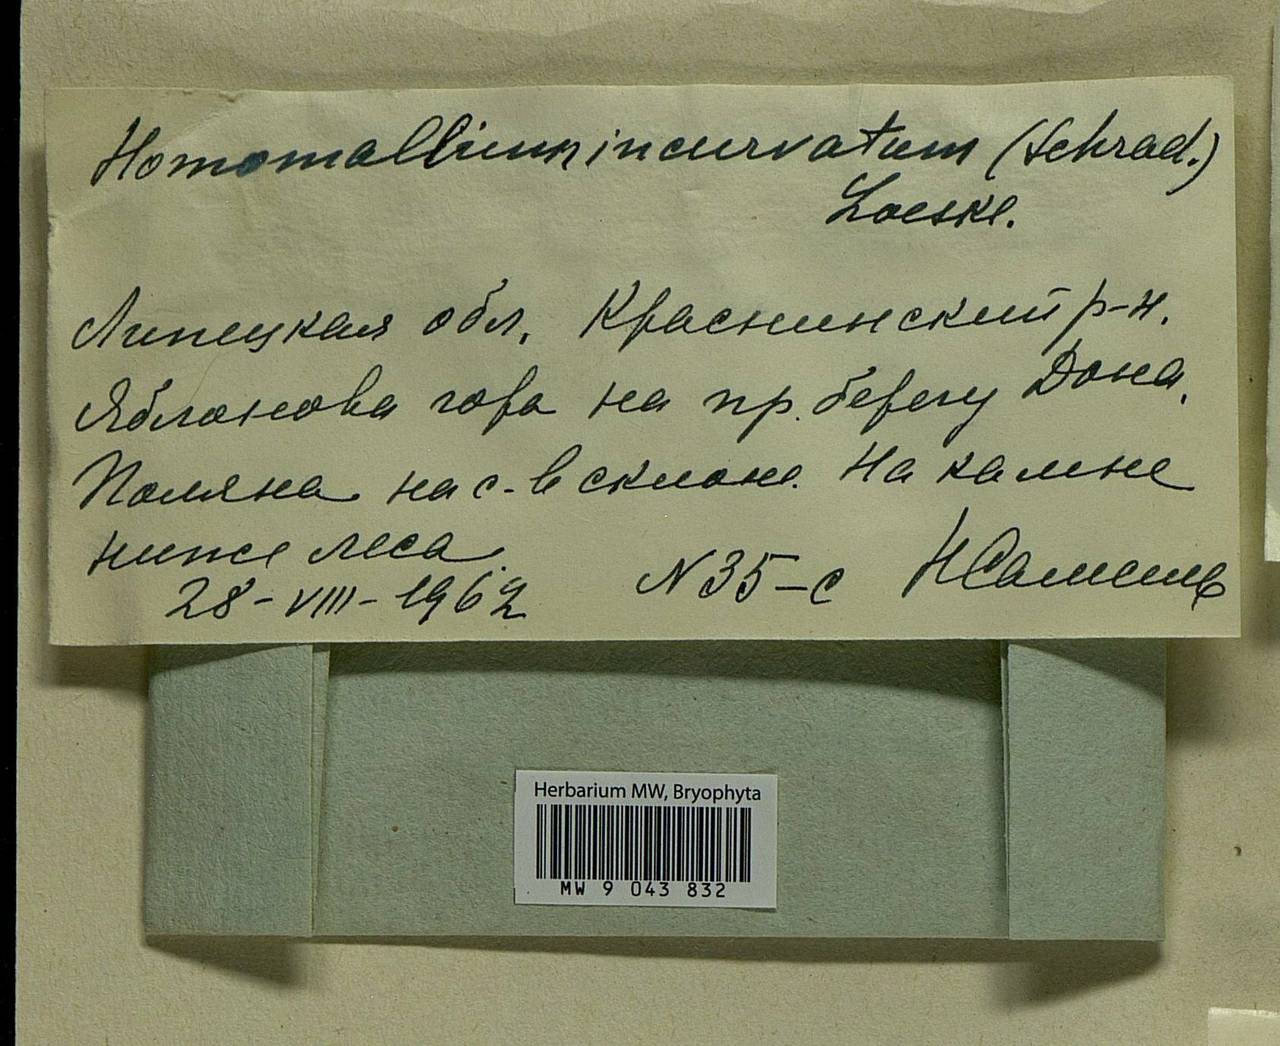 Homomallium incurvatum (Schrad.)
Loeske.
Липецкая обл. Краснинский р-н.
Яблонова гора на пр. берегу Дона.
Поляна на с-в склоне. На камне
ниже леса.
28-VIII-1962 N35-с
Herbarium MW, Bryophyta
MW 9 043 832